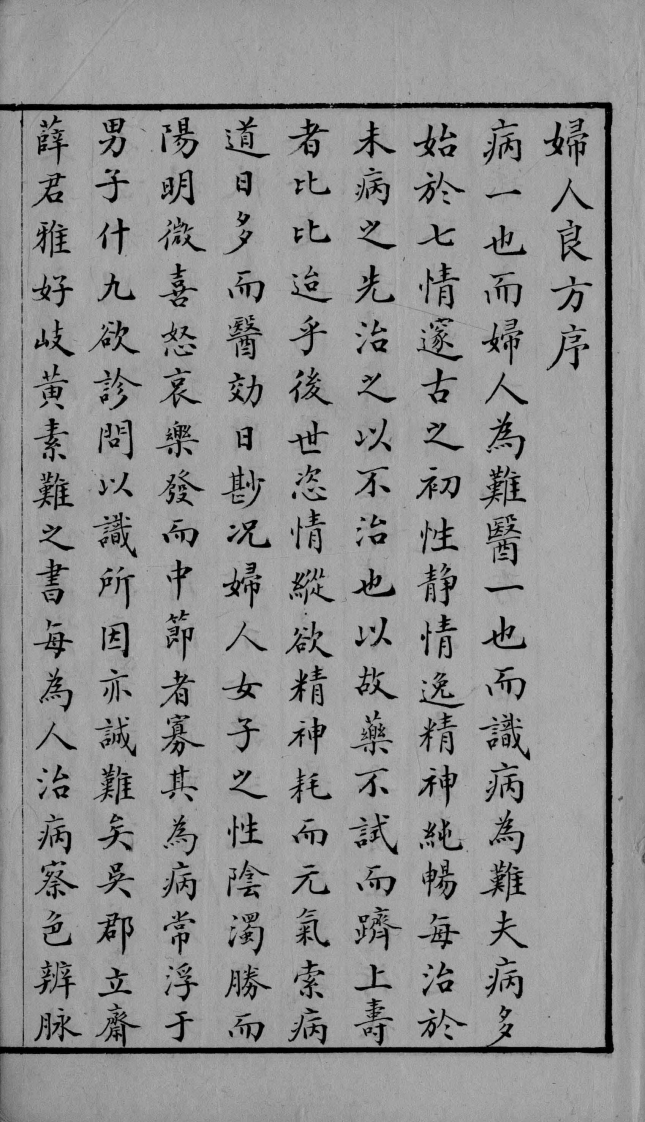 婦人良方序
病一也而婦人為難醫一也而識病為難夫病多
始於七情邃古之初性静情逸精神純暢每治於
未病之先治之以不治也以故藥不試而躋上壽
者比比迨乎後世恣情縱欲精神耗而元氣索病
道日多而醫効日尠况婦人女子之性陰濁勝而
陽明微喜怒哀樂發而中節者寡其為病常浮于
男子什九欲診問以識所因亦誠難矣吳郡立齋
薛君雅好岐黄素難之書每為人治病察色辨脉